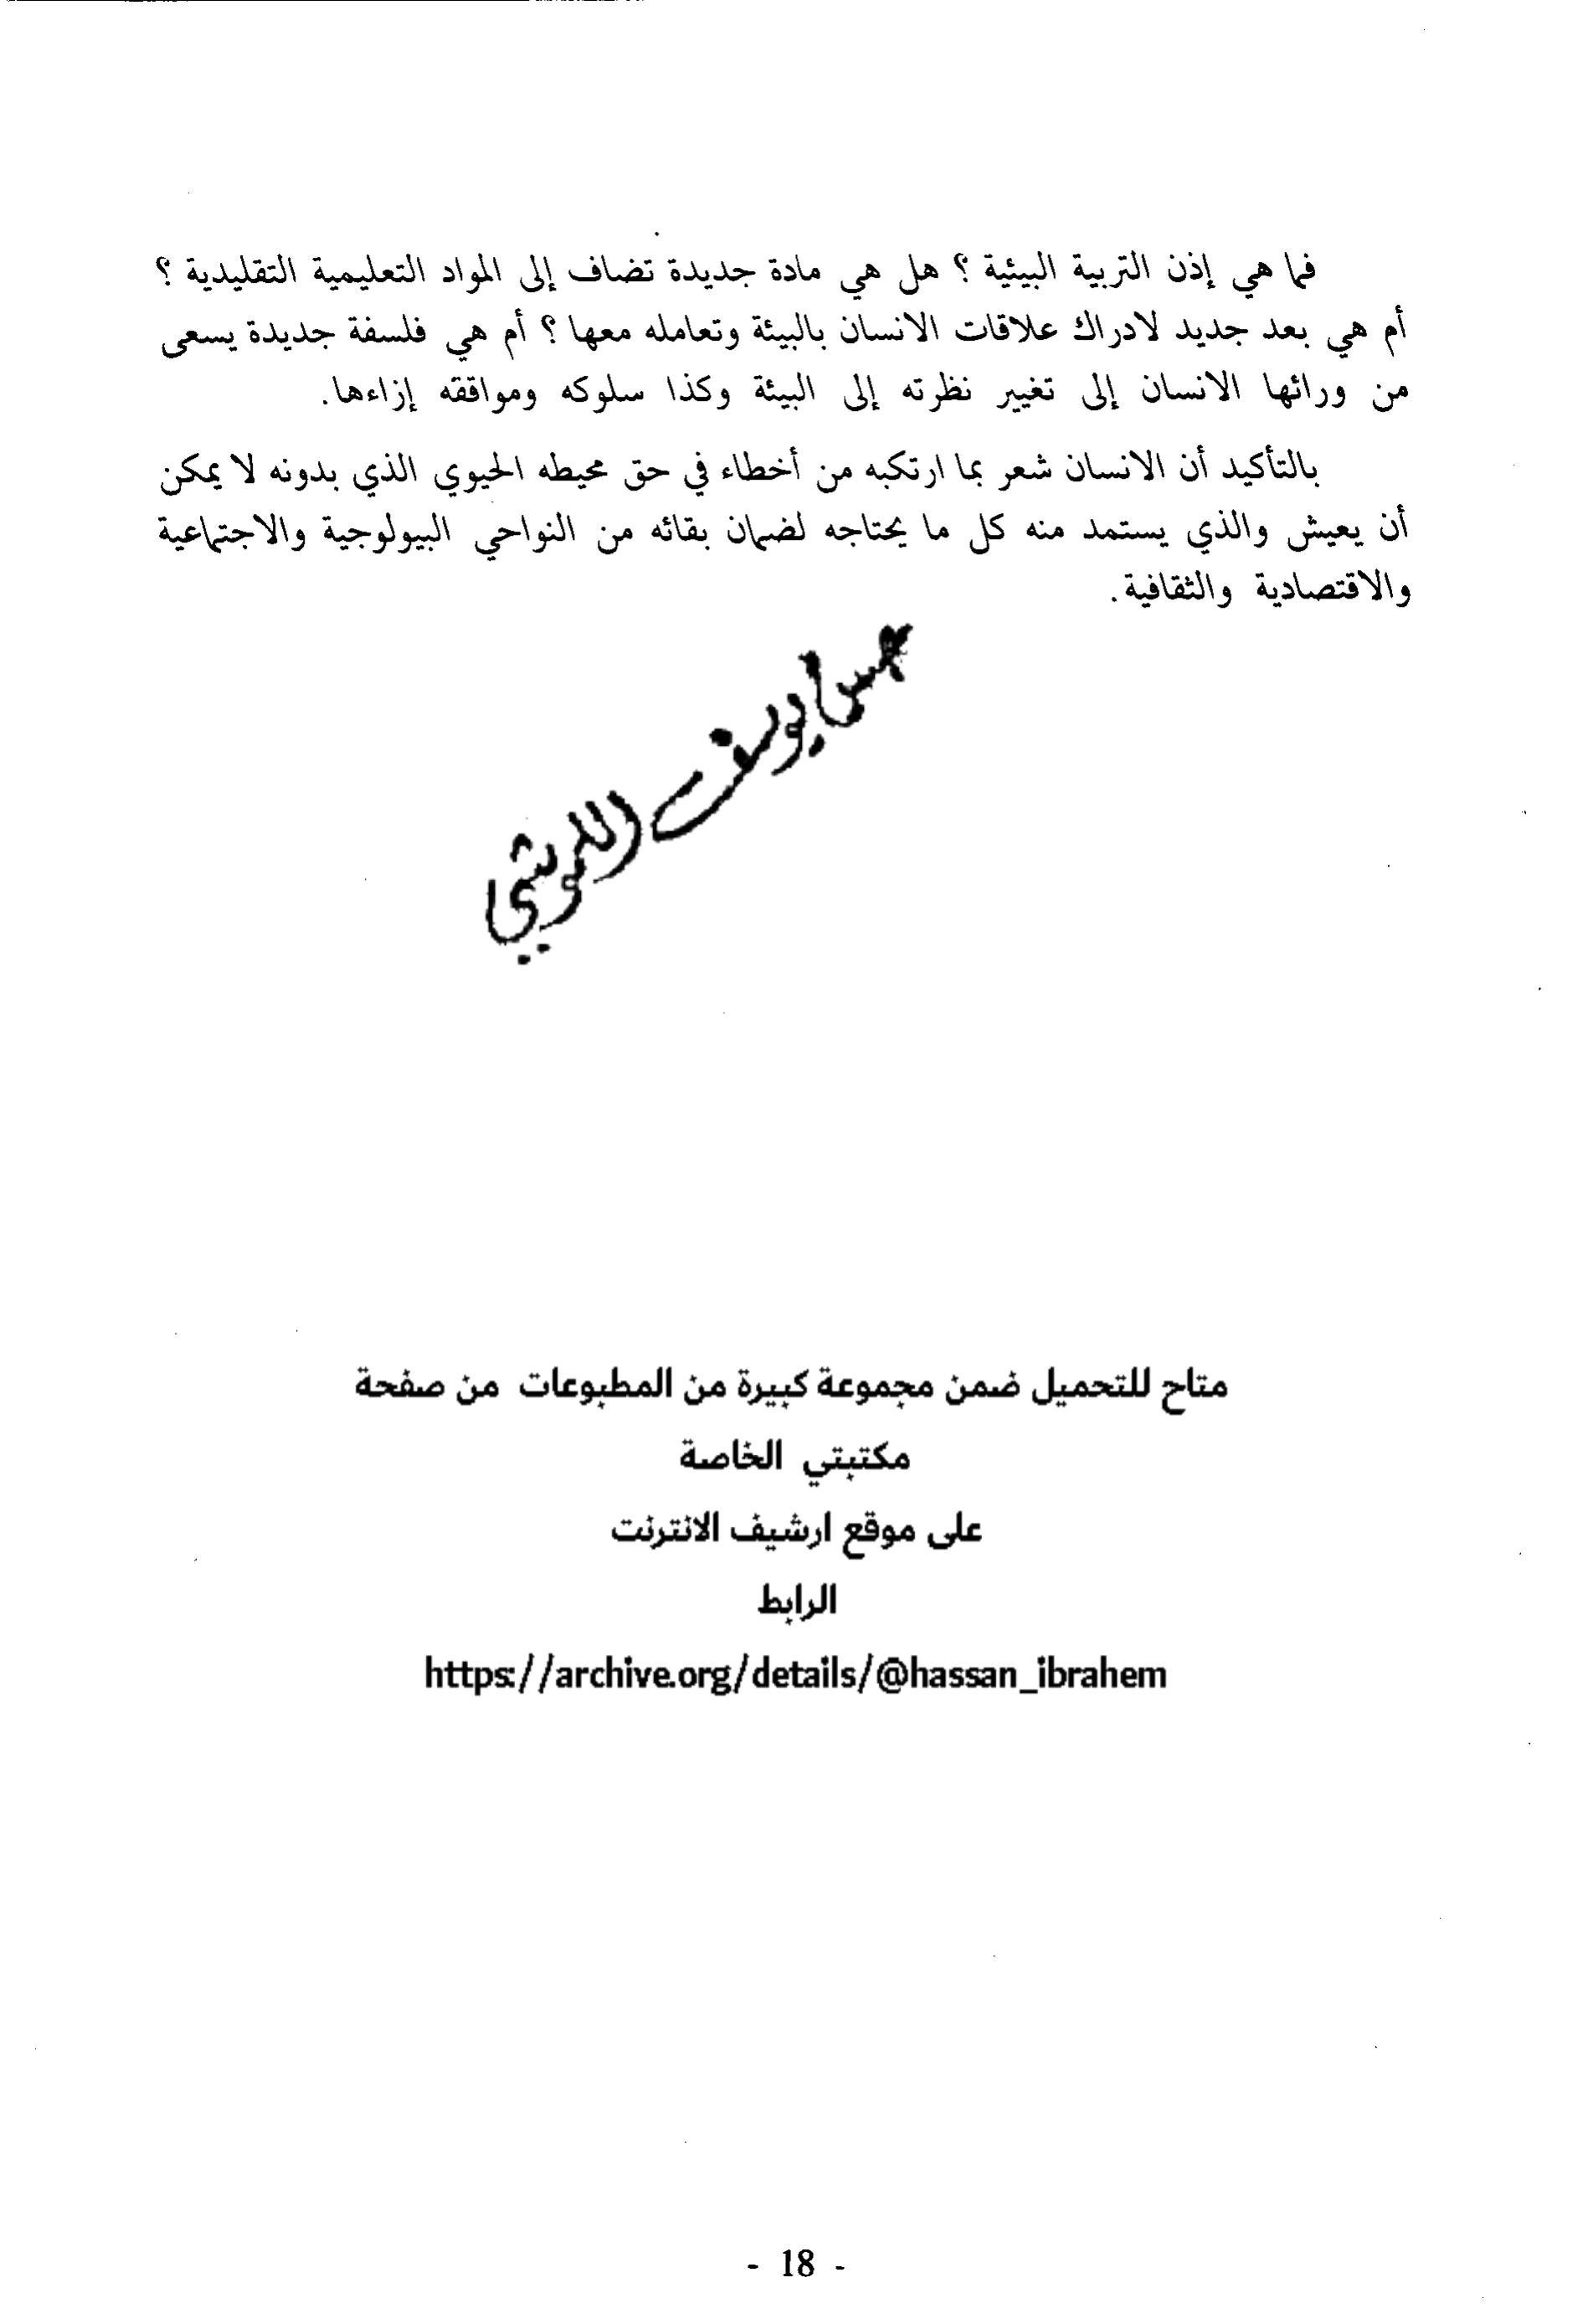 فما هي إذن التربية البيئية ؟ هل هي مادة جديدة تضاف إلى المواد التعليمية التقليدية ؟
أم هي بعد جديد لادراك علاقات الانسان بالبيئة وتعامله معها ؟ أم هي فلسفة جديدة يسعى
من ورائها الانسان إلى تغيير نظرته إلى البيئة وكذا سلوكه ومواقفه إزاءها.
بالتأكيد أن الانسان شعر بما ارتكبه من أخطاء في حق محيطه الحيوي الذي بدونه لا يمكن
أن يعيش والذي يستمد منه كل ما يحتاجه لضمان بقائه من النواحي البيولوجية والاجتماعية
والاقتصادية والثقافية.
متاح للتحميل ضمن مجموعة كبيرة من المطبوعات من صفحة
مكتبتي الخاصة
على موقع ارشيف الانترنت
الرابط
https://archive.org/details/@hassan_ibrahem
- 18 -